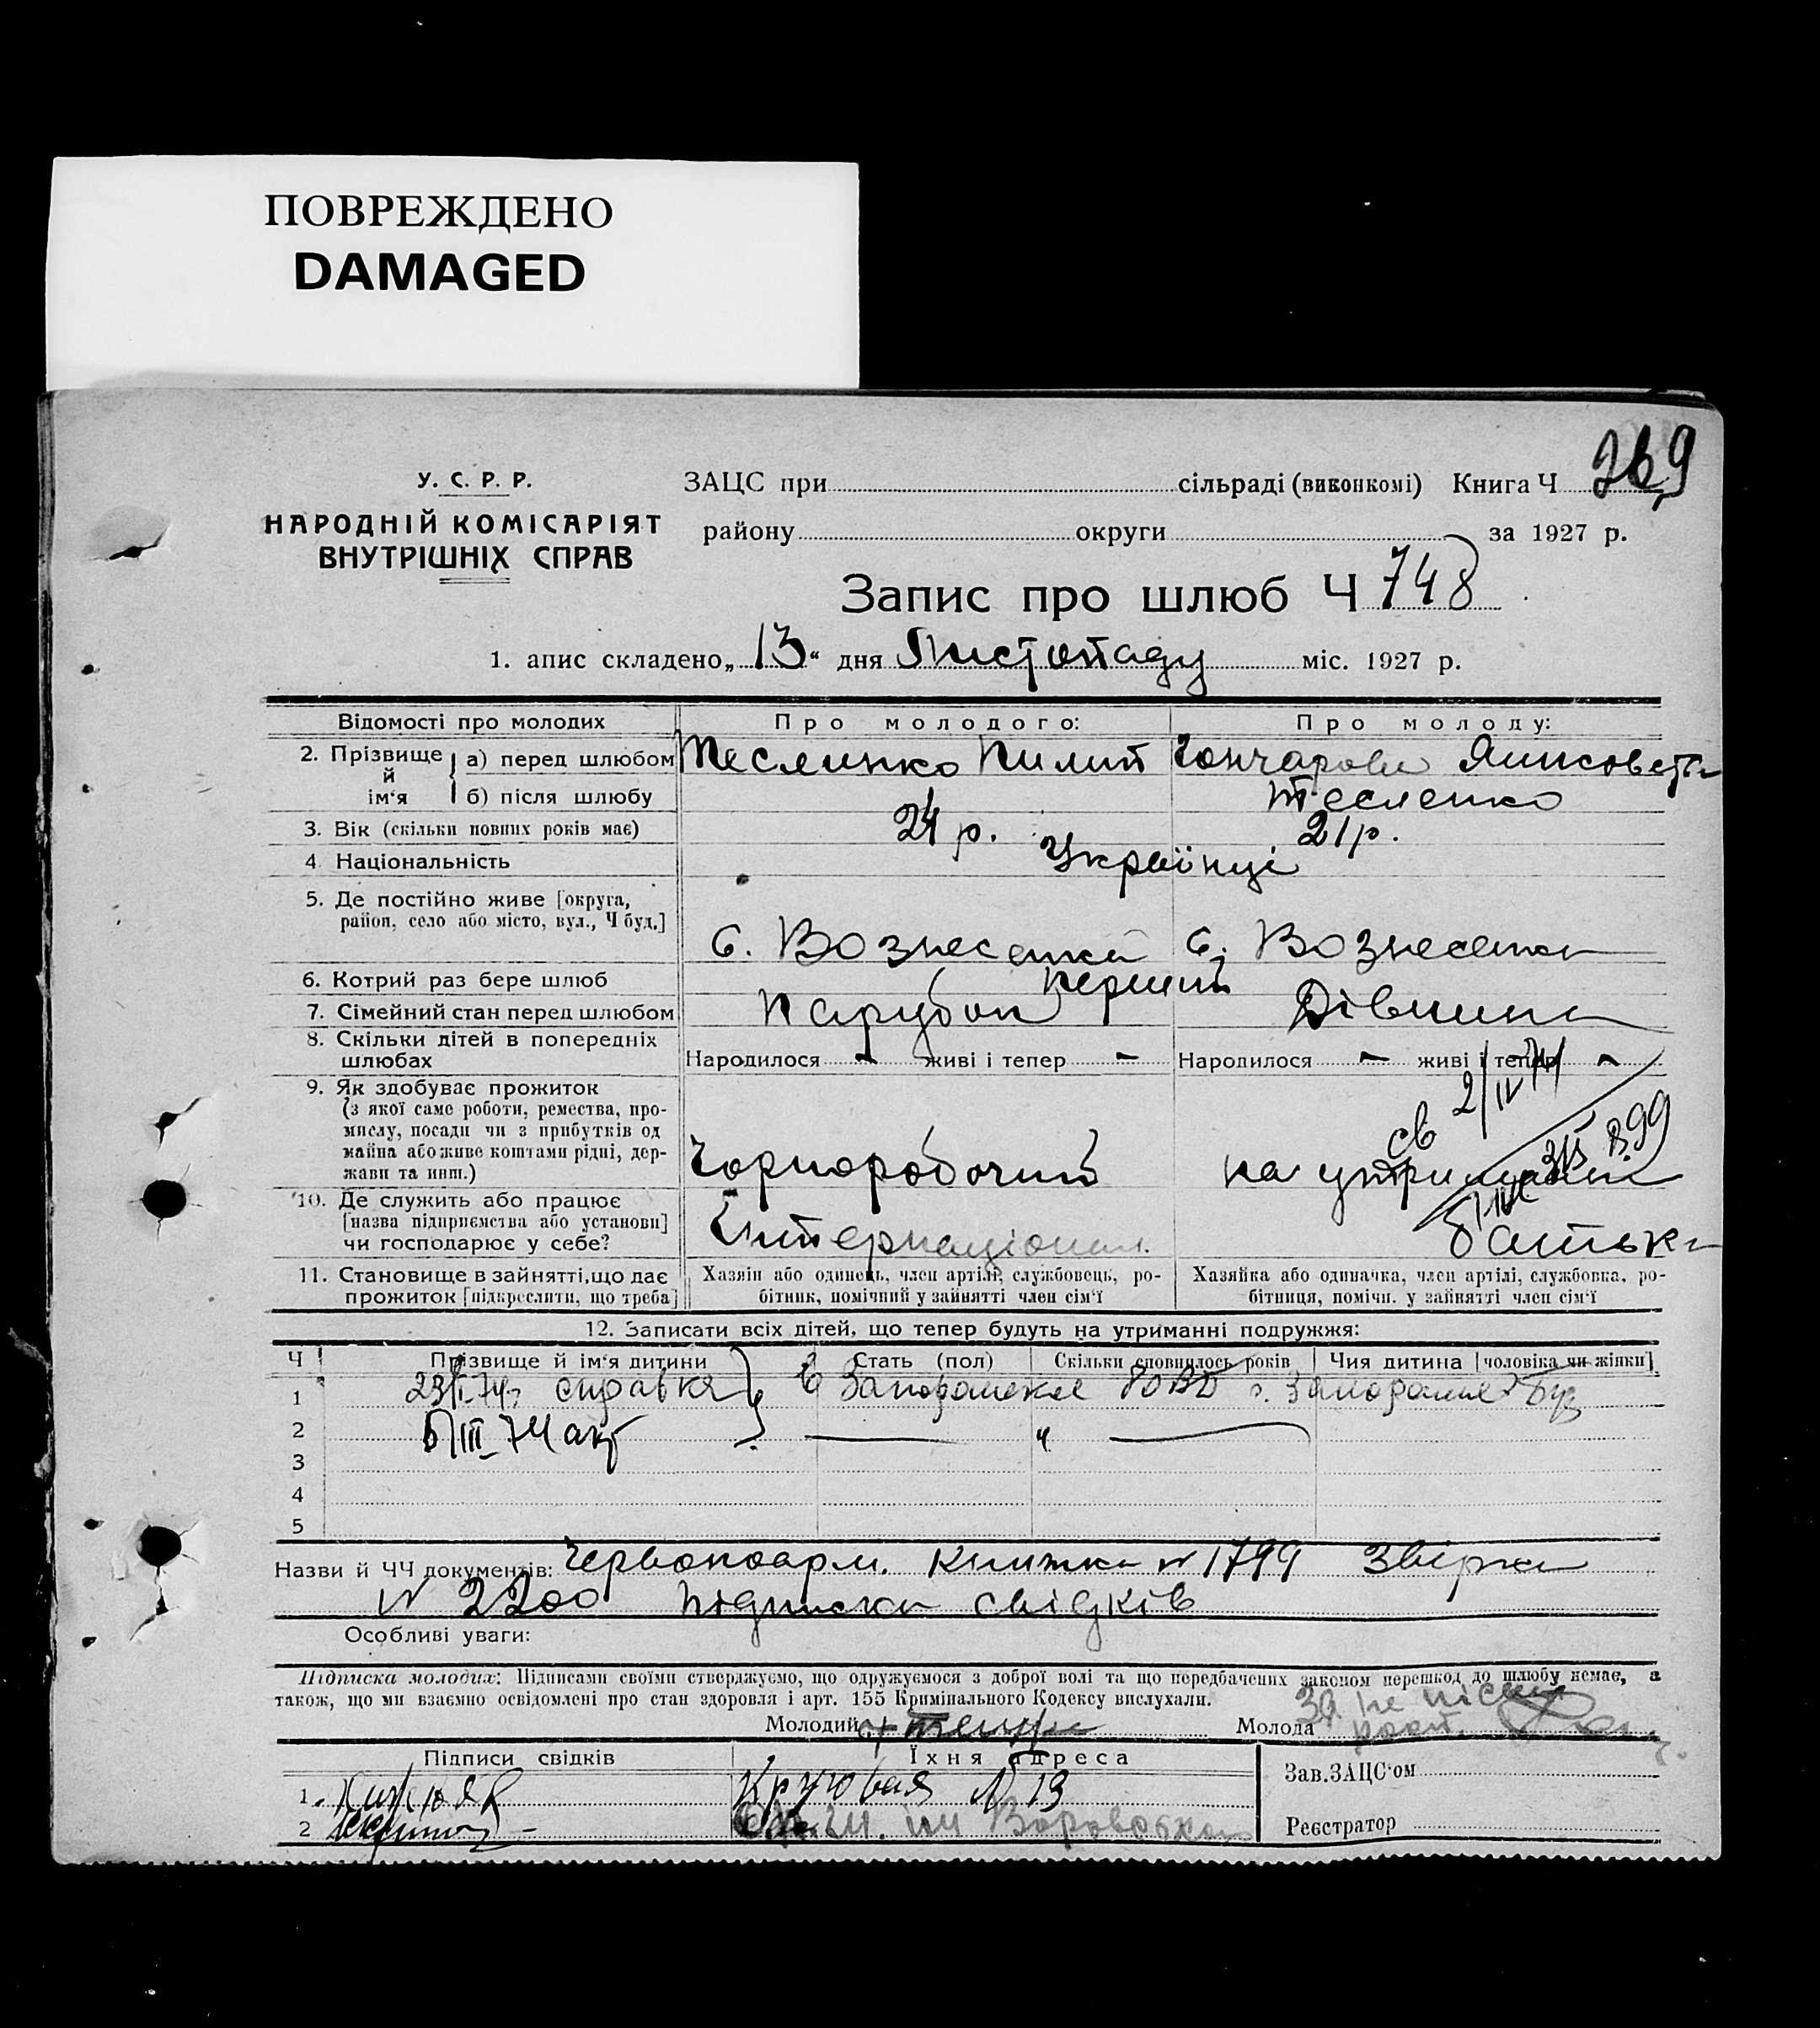 ПОВРЕЖДЕНО
DAMAGED
У. С. Р. Р.
НАРОДНІЙ КОМІСАРІЯТ
ВНУТРІШНІХ СПРАВ
ЗАЦС при сільраді (виконкомі) Книга Ч 269
району округи за 1927 р.
Запис про шлюб Ч 748
1. апис складено „13“ дня Листопаду міс. 1927 р.
Відомості про молодих Про молодого: Про молоду:
2. Прізвище й ім‘я а) перед шлюбом Тесленко Пилип Гончарова Єлисовета
б) після шлюбу Тесленко
3. Вік (скільки повних років має) 24 р. 21 р.
4. Національність Українці
5. Де постійно живе [округа,
район, село або місто, вул., Ч буд.] С. Вознесенка С. Вознесенка
6. Котрий раз бере шлюб перший
7. Сімейний стан перед шлюбом Парубок Дівчина
8. Скільки дітей в попередніх
шлюбах Народилося - живі і тепер - Народилося - живі і тепер -
9. Як здобуває прожиток
(з якої саме роботи, ремества, про-
мислу, посади чи з прибутків од
майна або живе коштами рідні, дер-
жави та инш.) Чорноробочий на утриманні
св 2/IV 74
10. Де служить або працює
[назва підприємства або установи]
чи господарює у себе? Інтернаціонал. батька
11. Становище в зайнятті, що дає
прожиток [підкреслити, що треба]
Хазяїн або одинець, член артілі, службовець, ро-
бітник, помічний у зайнятті член сім‘ї
Хазяйка або одиначка, член артілі, службовка, ро-
бітниця, помічн. у зайнятті член сім‘ї
12. Записати всіх дітей, що тепер будуть на утриманні подружжя:
Ч Прізвище й ім‘я дитини Стать (пол) Скільки сповнилось років Чия дитина [чоловіка чи жінки]
1 справка в Запорожское РОВД г. Запорожье
2 III 74 акт — " —
3
4
5
Назви й ЧЧ документів: Червоноарм. книжка № 1799 Звірка
№ 2200 підписки свідків
Особливі уваги:
Підписка молодих: Підписами своїми стверджуємо, що одружуємося з доброї волі та що передбачених законом перешкод до шлюбу немає, а
також, що ми взаємно освідомлені про стан здоровля і арт. 155 Кримінального Кодексу вислухали.
Молодий Молода
Підписи свідків Їхня адреса
1. Круговая № 13
2 им Воровского
Зав. ЗАЦС‘ом
Реєстратор